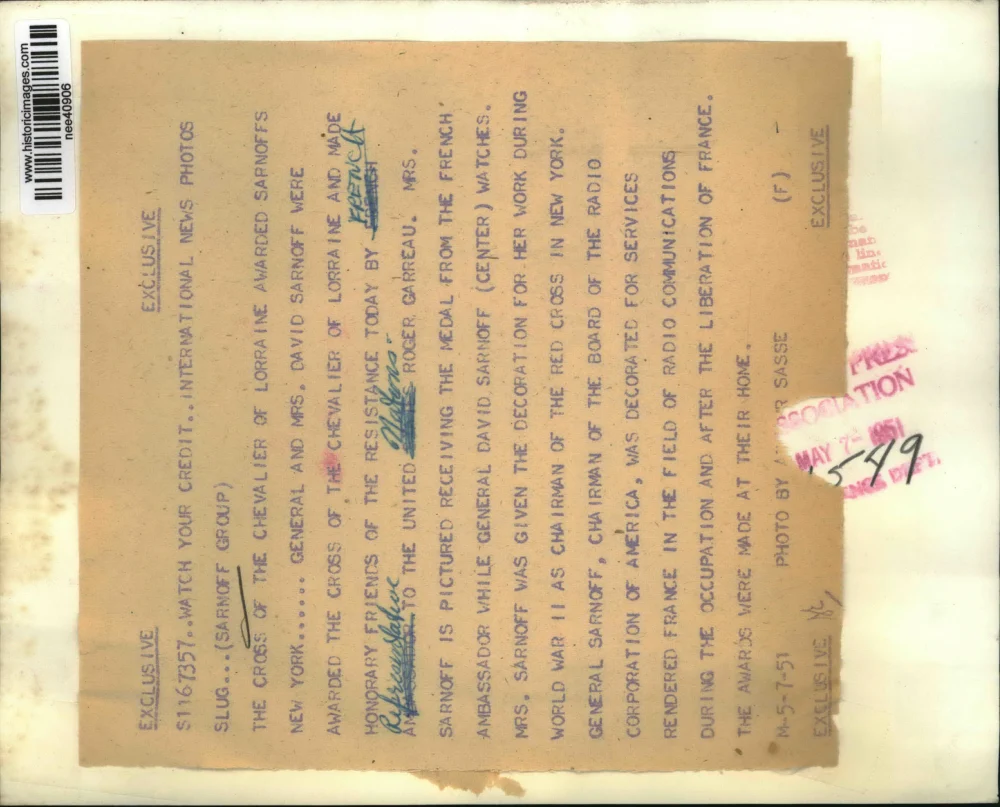 www.historicimages.com
nee40906
EXCLUSIVE EXCLUSIVE
S1167357..WATCH YOUR CREDIT..INTERNATIONAL NEWS PHOTOS
SLUG...(SARNOFF GROUP)
THE CROSS OF THE CHEVALIER OF LORRAINE AWARDED SARNOFFS
NEW YORK...... GENERAL AND MRS. DAVID SARNOFF WERE
AWARDED THE CROSS OF THE CHEVALIER OF LORRAINE AND MADE
HONORARY FRIENDS OF THE RESISTANCE TODAY BY FRENCH
Representative TO THE UNITED Nations ROGER GARREAU. MRS.
SARNOFF IS PICTURED RECEIVING THE MEDAL FROM THE FRENCH
AMBASSADOR WHILE GENERAL DAVID SARNOFF (CENTER) WATCHES.
MRS. SARNOFF WAS GIVEN THE DECORATION FOR HER WORK DURING
WORLD WAR II AS CHAIRMAN OF THE RED CROSS IN NEW YORK.
GENERAL SARNOFF, CHAIRMAN OF THE BOARD OF THE RADIO
CORPORATION OF AMERICA, WAS DECORATED FOR SERVICES
RENDERED FRANCE IN THE FIELD OF RADIO COMMUNICATIONS
DURING THE OCCUPATION AND AFTER THE LIBERATION OF FRANCE.
THE AWARDS WERE MADE AT THEIR HOME.
M-5-7-51 PHOTO BY SASSE (F)
EXCLUSIVE EXCLUSIVE
MAY 7- 1951
549